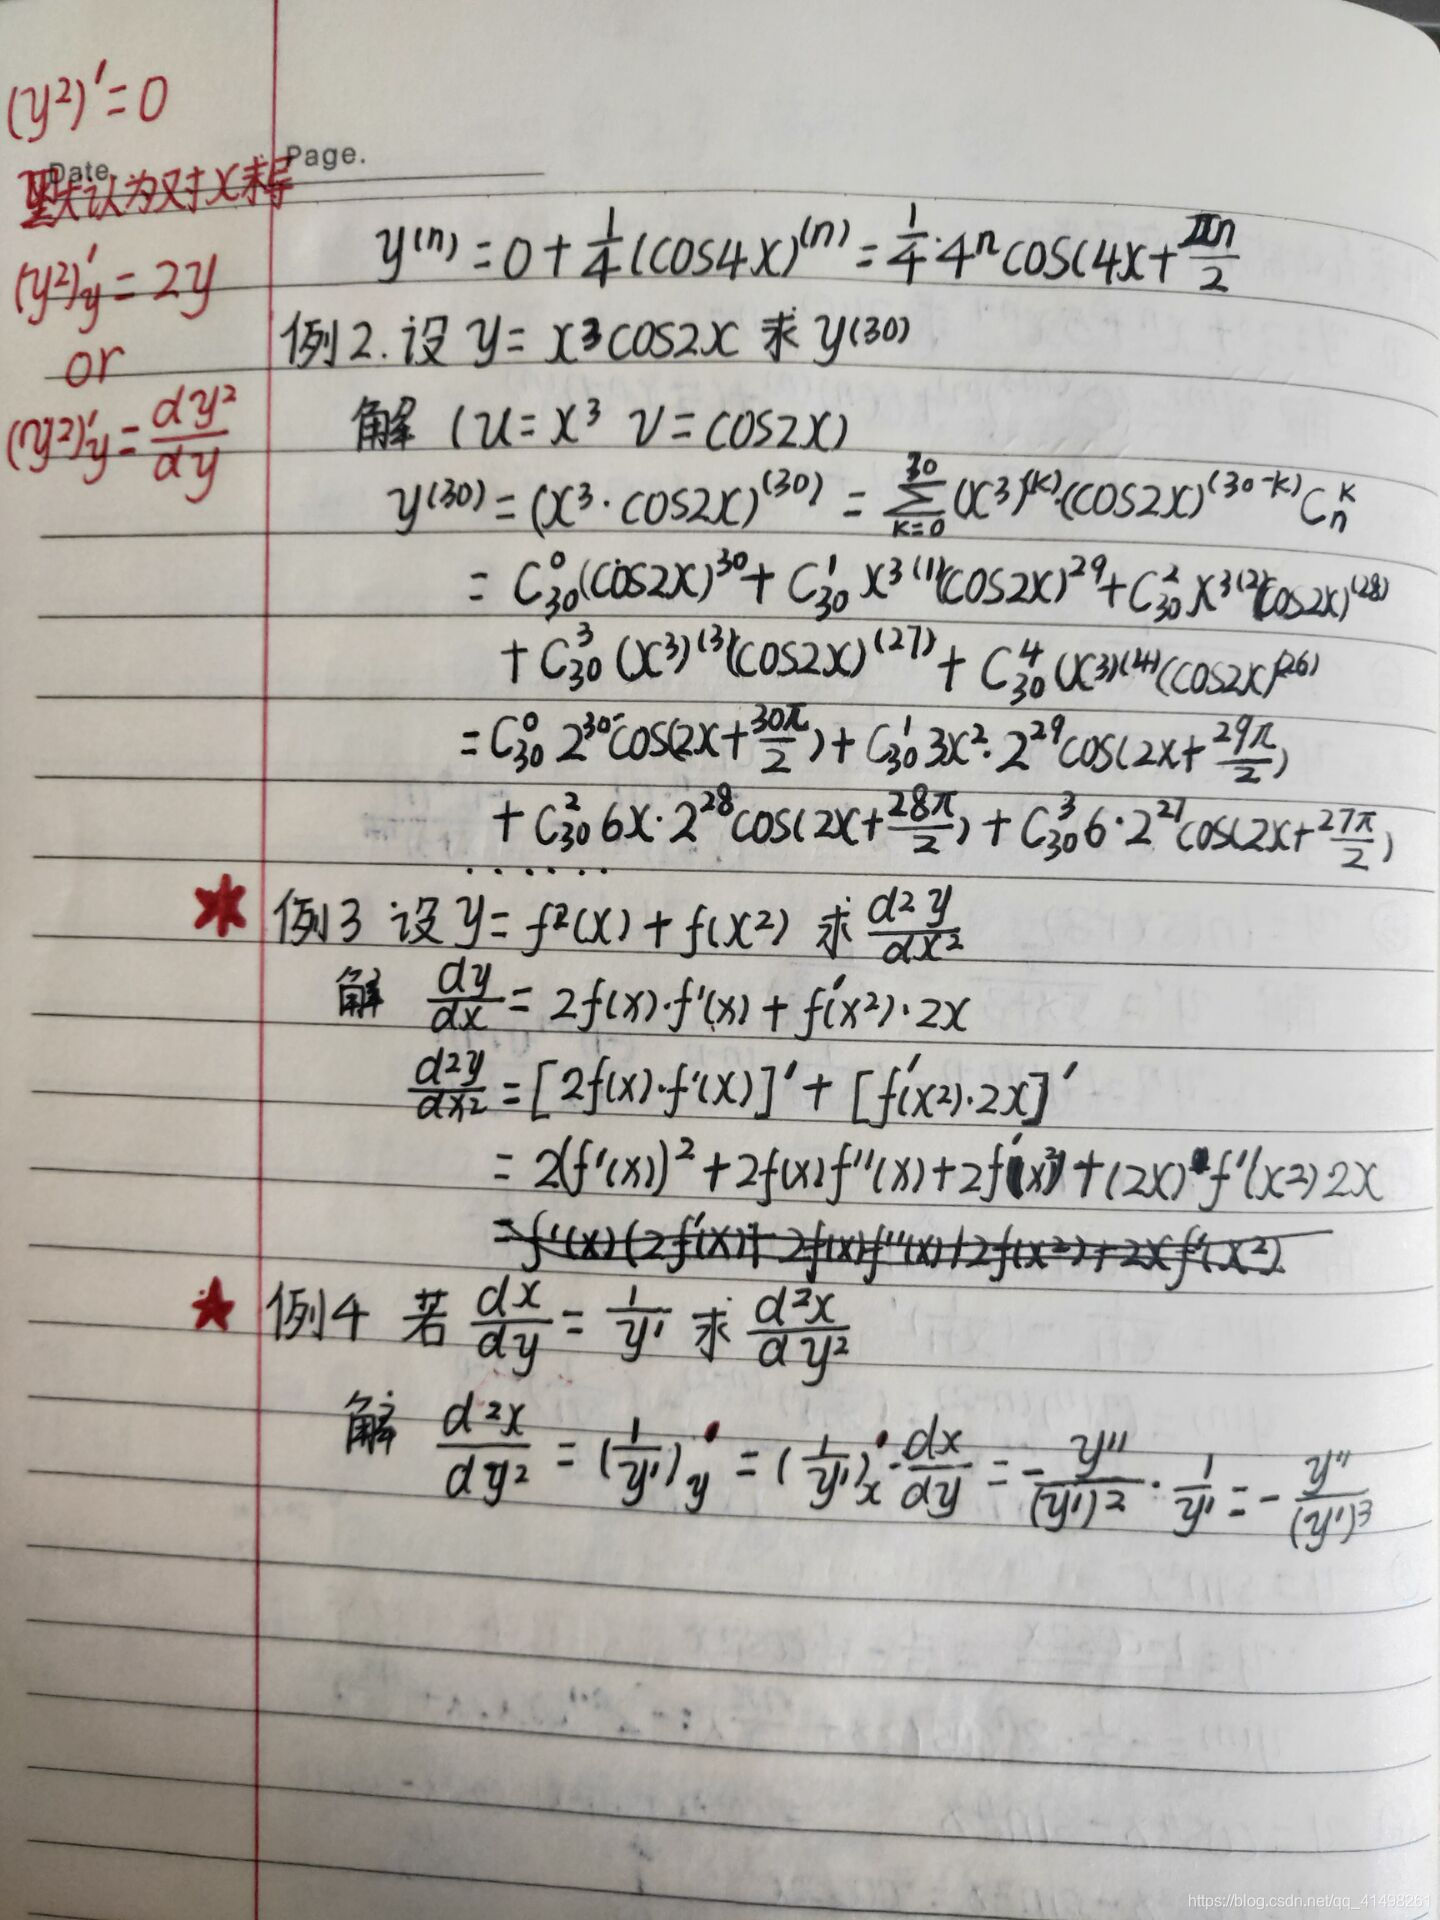 (y²)′=0
Date.
Page.
默认为对x求导
(y²)′y=2y
or
(y²)′y=dy²/dy
y⁽ⁿ⁾=0+1/4(cos4x)⁽ⁿ⁾=1/4·4ⁿcos(4x+πn/2
例2.设 y=x³cos2x 求 y⁽³⁰⁾
解 (u=x³ v=cos2x)
y⁽³⁰⁾=(x³·cos2x)⁽³⁰⁾=∑_{k=0}^{30}(x³)^{(k)}·(cos2x)^{(30-k)}C_n^k
=C_{30}^0(cos2x)^{30}+C_{30}^1 x^{3(1)}(cos2x)^{29}+C_{30}^2 x^{3(2)}(cos2x)^{(28)}
+C_{30}^3(x³)^{(3)}(cos2x)^{(27)}+C_{30}^4(x³)^{(4)}(cos2x)^{(26)}
=C_{30}^0 2^{30}cos(2x+30π/2)+C_{30}^1 3x²·2^{29}cos(2x+29π/2)
+C_{30}^2 6x·2^{28}cos(2x+28π/2)+C_{30}^3 6·2^{27}cos(2x+27π/2)
......
例3 设 y=f²(x)+f(x²) 求 d²y/dx²
解 dy/dx=2f(x)·f′(x)+f′(x²)·2x
d²y/dx²=[2f(x)·f′(x)]′+[f′(x²)·2x]′
=2(f′(x))²+2f(x)f″(x)+2f′(x²)+(2x)f″(x²)2x
=f′(x)(2f′(x)+2f(x)f″(x)+2f(x²)+2xf′(x²)
例4 若 dx/dy=1/y′ 求 d²x/dy²
解 d²x/dy²=(1/y′)′y=(1/y′)′x·dx/dy=-y″/(y′)²·1/y′=-y″/(y′)³
https://blog.csdn.net/qq_41498261